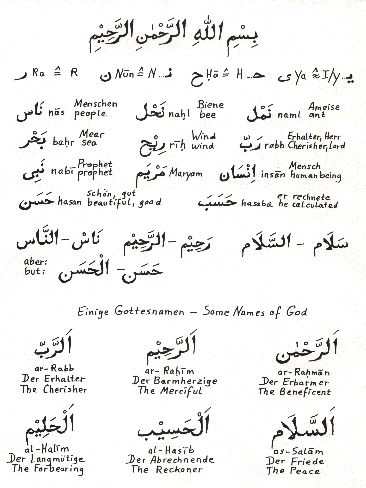 بِسْمِ اللهِ الرَّحْمٰنِ الرَّحِيْمِ
ر Ra ≙ R ن Nūn ≙ N... نـ ح Ḥā ≙ H... حـ ى Ya ≙ I/y... يـ
نَاس nās Menschen people نَحْل naḥl Biene bee نَمْل naml Ameise ant
بَحْر baḥr Meer sea رِيْح rīḥ Wind wind رَبّ rabb Erhalter, Herr Cherisher, Lord
نَبِى nabī Prophet prophet مَرْيَم Maryam إِنْسَان insān Mensch human being
حَسَن hasan schön, gut beautiful, good حَسَبَ hasaba er rechnete he calculated
نَاس – النَّاس رَحِيْم – الرَّحِيْم سَلَام – السَّلَام
aber: but: حَسَن – الْحَسَن
Einige Gottesnamen – Some Names of God
اَلرَّبّ اَلرَّحِيْم اَلرَّحْمٰن
ar-Rabb ar-Raḥīm ar-Raḥmān
Der Erhalter Der Barmherzige Der Erbarmer
The Cherisher The Merciful The Beneficent
اَلْحَلِيْم اَلْحَسِيْب اَلسَّلَام
al-Ḥalīm al-Ḥasīb as-Salām
Der Langmütige Der Abrechnende Der Friede
The Forbearing The Reckoner The Peace